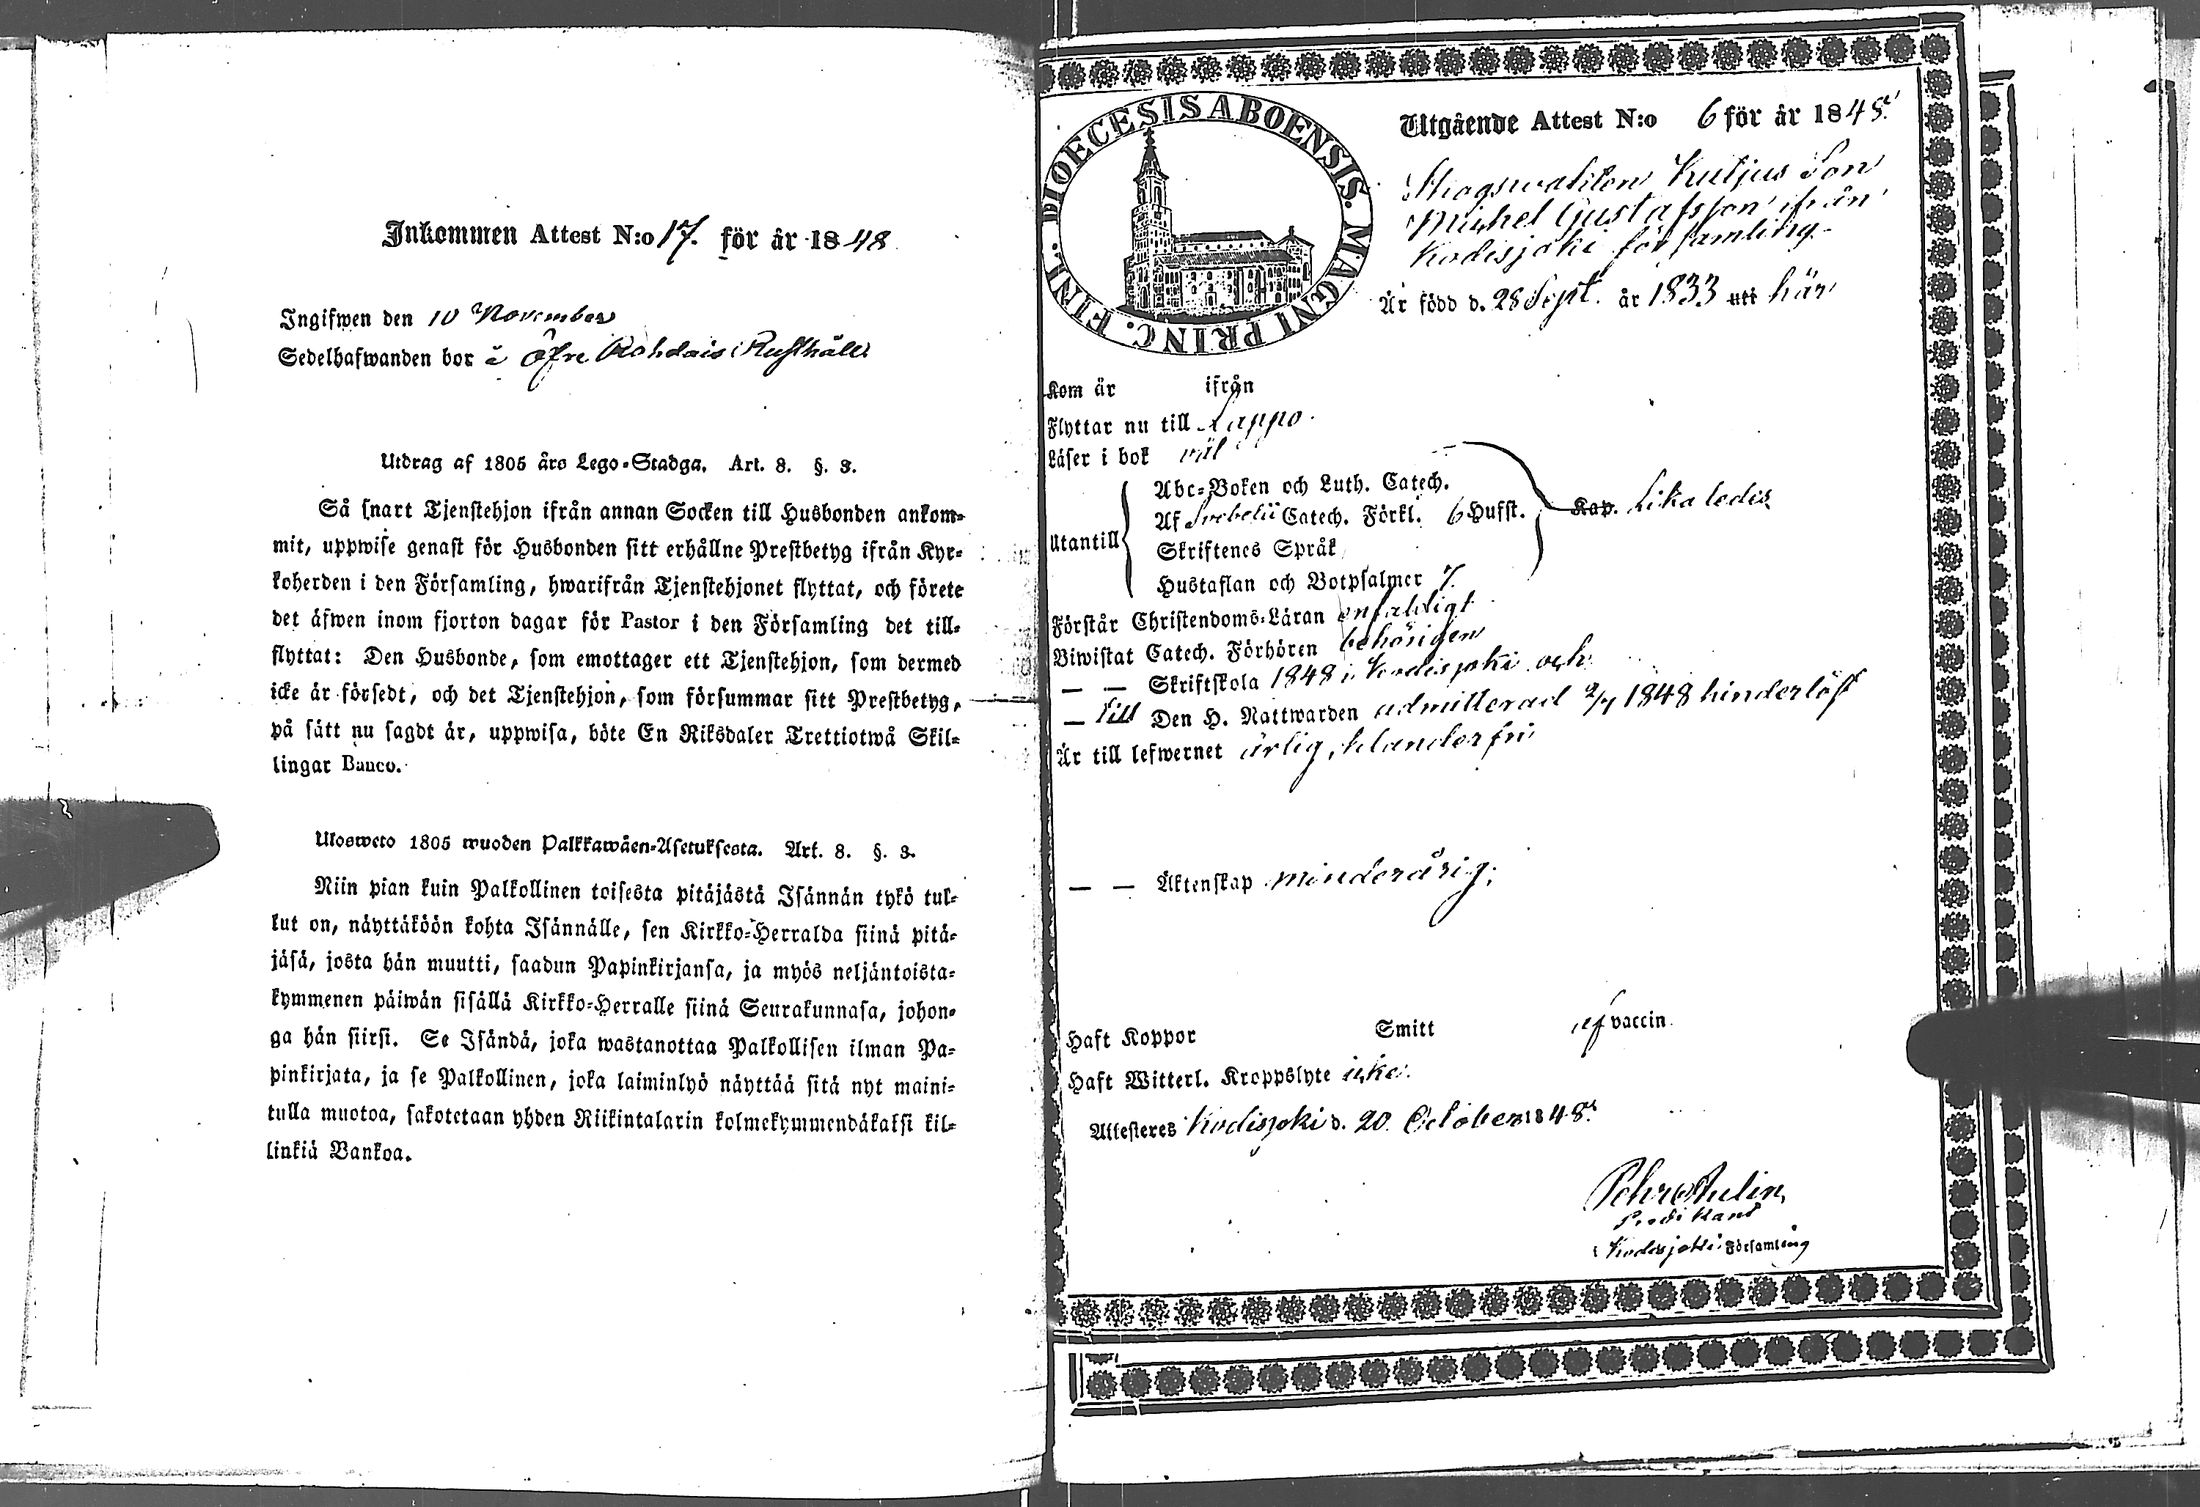 Inkommen Attest N:o 17. för år 1848
Ingifwen den 10 November
Sedelhafwanden bor å Öfre Rohdais Rusthåll
Utdrag af 1805 års Lego-Stadga. Art. 8. §. 3.
Så snart Tjenstehjon ifrån annan Socken till Husbonden ankom-
mit, uppwise genast för Husbonden sitt erhållne Prestbetyg ifrån Kyr-
koherden i den Församling, hwarifrån Tjenstehjonet flyttat, och förete
det äfwen inom fjorton dagar för Pastor i den Församling det till-
flyttat: Den Husbonde, som emottager ett Tjenstehjon, som dermed
icke är försedt, och det Tjenstehjon, som försummar sitt Prestbetyg,
på sätt nu sagdt är, uppwisa, böte En Riksdaler Trettiotwå Skil-
lingar Banco.
Ulosweto 1805 wuoden Palkkawäen-Asetuksesta. Art. 8. §. 3.
Niin pian kuin Palkollinen toisesta pitäjästä Isännän tykö tul-
lut on, näyttäköön kohta Isännälle, sen Kirkko-Herralda siinä pitä-
jäsä, josta hän muutti, saadun Papinkirjansa, ja myös neljäntoista-
kymmenen päiwän sisällä Kirkko-Herralle siinä Seurakunnasa, johon-
ga hän siirsi. Se Isändä, joka wastanottaa Palkollisen ilman Pa-
pinkirjata, ja se Palkollinen, joka laiminlyö näyttää sitä nyt maini-
tulla muotoa, sakotetaan yhden Riikintalarin kolmekymmendäkaksi kil-
linkiä Bankoa.
DIOECESIS ABOENSIS. MAGNI PRINC. FINL.
Utgående Attest N:o 6 för år 1848.
Kuljus Son
Michel Gustafsson ifrån
Kodisjoki församling
Är född d. 28 Sept. år 1833 uti här
Kom år ifrån
Flyttar nu till Lappo.
Läser i bok väl
Utantill
Abc-Boken och Luth. Catech.
Af Svebelii Catech. Förkl. 6 Hufst. Kap. Lika ledes
Skriftenes Språk
Hustaflan och Botpsalmer 7.
Förstår Christendoms-Läran enfaldigt
Biwistat Catech. Förhören behörigen
— — Skriftskola 1848 i Kodisjoki och
— till Den H. Nattwarden admitterad 2/7 1848 hinderlös
Är till lefwernet ärlig, klanderfri
— — Äktenskap minderårig;
Haft Koppor Smitt af vaccin.
Haft Witterl. Kroppslyte icke.
Attesteres Kodisjoki d. 20. October 1848.
Predikant
i Kodisjoki Församling